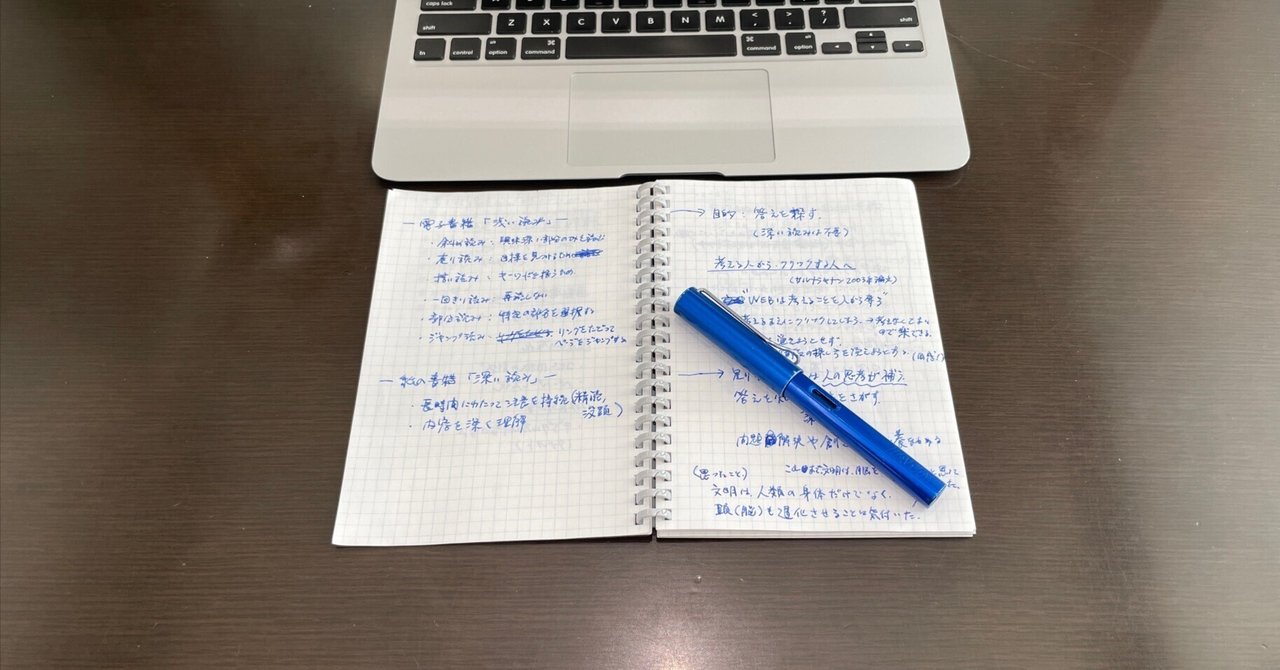 caps lock
shift Z X C V B N M < , > . ? / shift
fn control option command command option
— 電子書籍「浅い読み」—
・斜め読み：興味深い部分のみを読む
・走り読み：目標を見つける
・拾い読み：キーワードを拾うため
・一回きり読み：再読しない
・部分読み：特定の部分を重視する
・ジャンプ読み：リンクをたどって
ページをジャンプする
— 紙の書籍「深い読み」—
・長時間にわたって注意を持続（精読，
没頭）
・内容を深く理解
→ 目的：答えを探す．
（深い読みは不要）
考える人から、クリックする人へ
2003年
"WEBは考えることを人から奪う"
考えるまえにクリックしてしまう．→考えなくてよい
ので楽できる．
覚えようとせず．
の探し方を覚えようとする．
→ 足り は人の思考が補う．
答えを をさがす．
問題解決や創
（思ったこと）
文明は、人類の身体だけでなく、
頭（脳）も退化させることに気付いた．